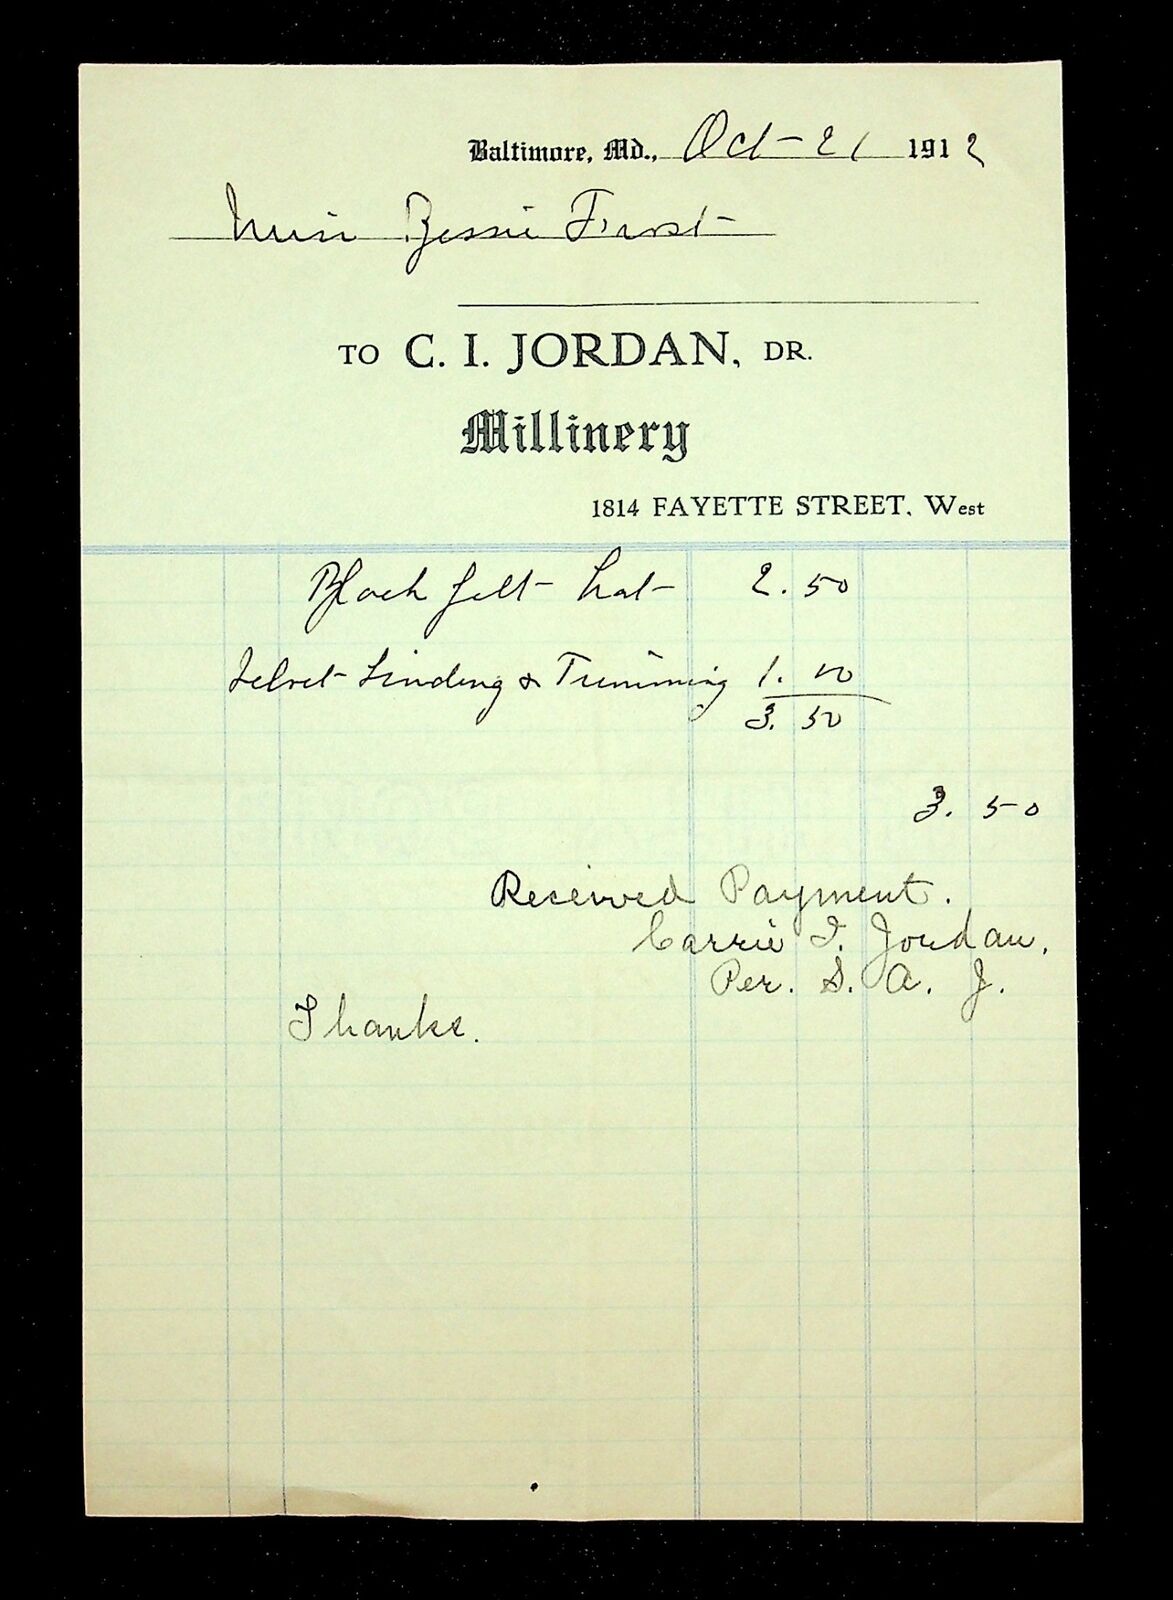 Baltimore, Md., Oct - 21 1912
Miss Bessie Frost
TO C. I. JORDAN, DR.
Millinery
1814 FAYETTE STREET, West
Black felt hat 2.50
Velvet binding & Trimming 1.00
3.50
3.50
Received Payment.
Carrie I. Jordan.
Per. S. A. J.
Thanks.